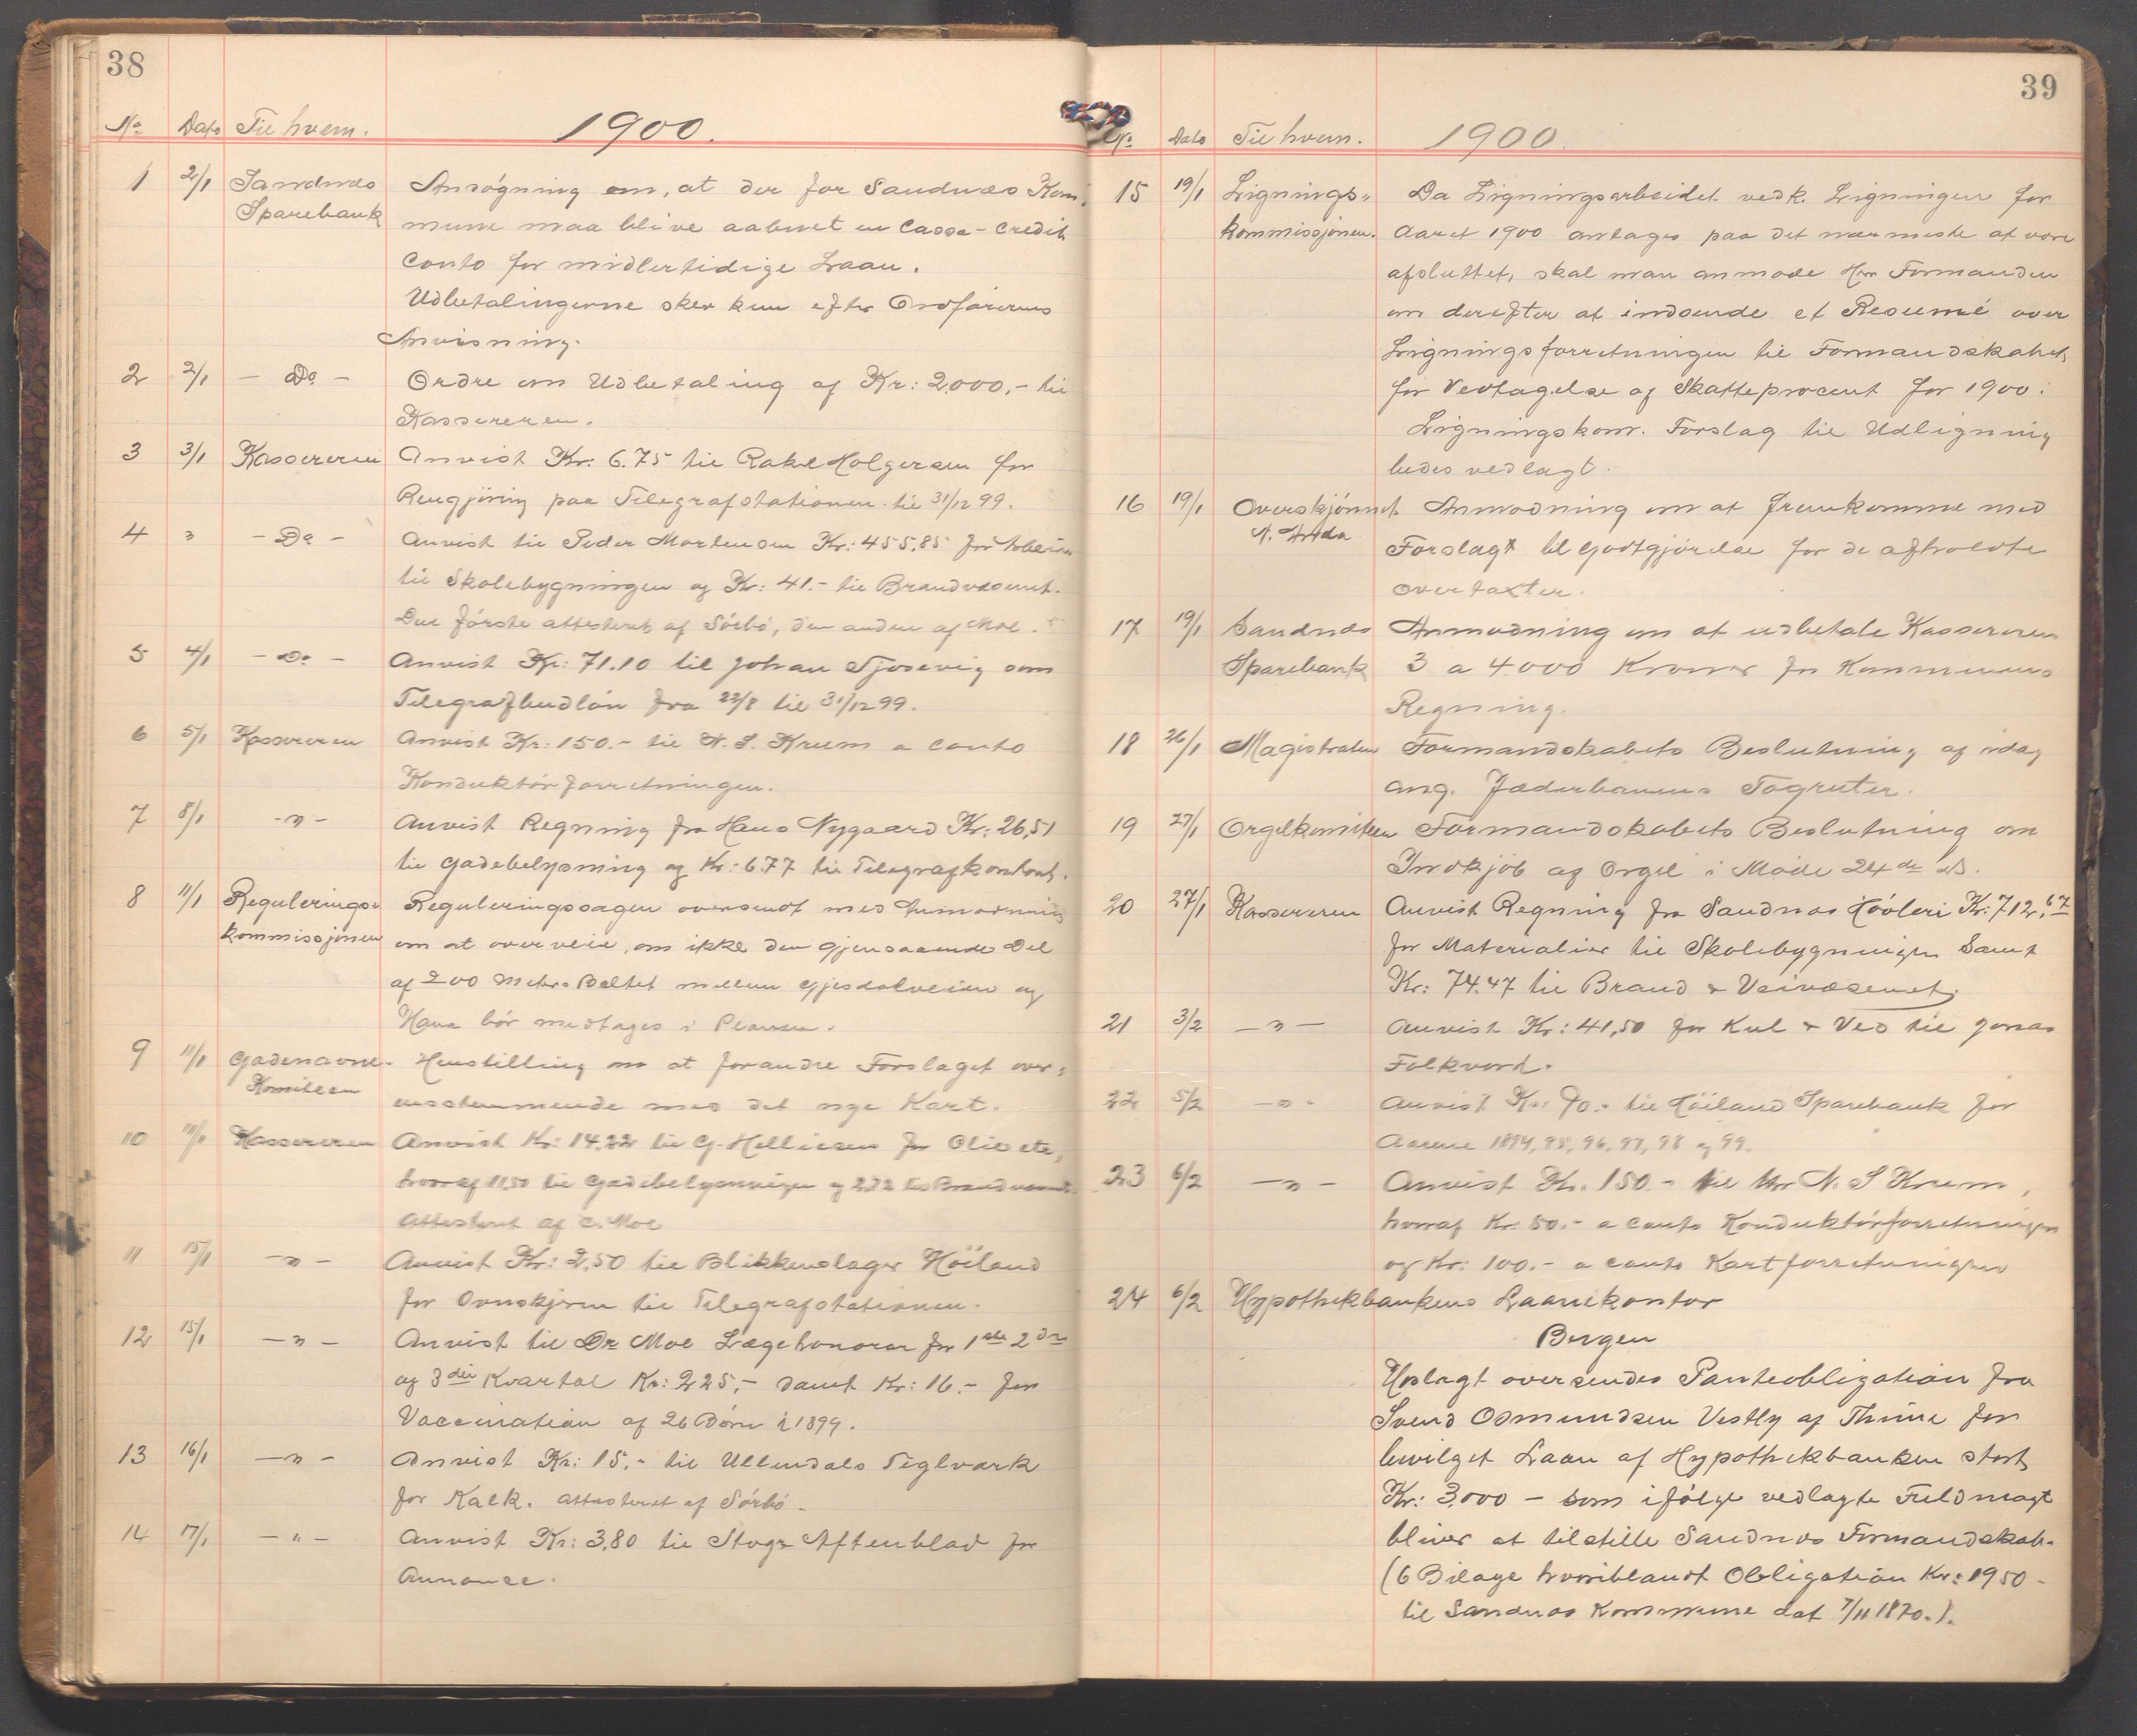 38
No Dato Til hvem. 1900.
1 2/1 Sandnes Ansøgning om, at der for Sandnæs Kom-
Sparebank mune maa blive aabnet en Cassa-Credit
Conto for midlertidige Laan.
Udbetalingerne sker kun efter Ordførerens
Anvisning.
2 2/1 - Do - Ordre om Udbetaling af Kr: 2000,- til
Kassereren.
3 3/1 Kassereren Anvist Kr. 6.75 til Rakel Holgersen for
Rengjøring paa Telegrafstationen til 31/12 99.
4 " - Do - Anvist til Peder Mortensen Kr: 455,85 for Arbeide
til Skolebygningen og Kr: 41.- til Brandvæsenet.
Den første attesteret af Sørbø, den anden af Moe.
5 4/1 - Do - Anvist Kr: 71.10 til Johan Tjosevig som
Telegrafbudløn fra 22/8 til 31/12 99.
6 5/1 Kassereren Anvist Kr: 150.- til N. S. Krum a conto
Konduktørforretningen.
7 8/1 - " - Anvist Regning fra Hans Nygaard Kr: 26,51
til Gadebelysning og Kr: 6.77 til Telegrafkontoret.
8 11/1 Regulerings- Reguleringssagen oversendt med Anmodning
kommissjonen om at overveie, om ikke den gjenstaaende Del
af 200 Meter-Beltet mellem Gjesdalveien og
Hana bør medtages i Planen.
9 11/1 Gadenavne- Henstilling om at forandre Forslaget over-
Komiteen ensstemmende med det nye Kart.
10 11/1 Kassereren Anvist Kr: 14,22 til G. Helliesen for Olie etc,
hvoraf 11,50 til Gadebelysningen og 2,72 til Brandvæsenet.
Attesteret af C. Moe
11 15/1 - " - Anvist Kr: 2,50 til Blikkenslager Høiland
for Ovnskjerm til Telegrafstationen.
12 15/1 - " - Anvist til Dr Moe Lægehonorar for 1ste 2den
og 3die Kvartal Kr: 225,- samt Kr: 16.- for
Vaccination af 26 Børn i 1899.
13 16/1 - " - Anvist Kr: 15.- til Ullendals Teglværk
for Kalk. Attesteret af Sørbø.
14 17/1 - " - Anvist Kr: 3,80 til Stvgr Aftenblad for
Annonce.
39
No Dato Til hvem. 1900.
15 19/1 Lignings- Da Ligningsarbeidet vedk. Ligningen for
kommissjonen. Aaret 1900 antages paa det nærmeste at være
afsluttet, skal man anmode Hr Formanden
om derefter at indsende et Resumé over
Ligningsforretningen til Formandskabet
for Vedtagelse af Skatteprocent for 1900.
Ligningskom. Forslag til Udligning
bedes vedlagt.
16 19/1 Overskjønnet Anmodning om at fremkomme med
Forslag til Godtgjørelse for de afholdte
Overtaxter.
17 19/1 Sandnæs Anmodning om at udbetale Kassereren
Sparebank 3 a 4000 Kroner for Kommunens
Regning.
18 26/1 Magistraten Formandskabets Beslutning af idag
ang. Jæderbanens Togruter.
19 27/1 Orgelkomiteen Formandskabets Beslutning om
Indkjøb af Orgel i Møde 24de ds.
20 27/1 Kassereren Anvist Regning fra Sandnæs Høvleri Kr: 712,67
for Materialier til Skolebygningen Samt
Kr: 74.47 til Brand & Veivæsenet.
21 3/2 - " - Anvist Kr: 41,50 for Kul & Ved til Jonas
Folkvord.
22 5/2 - " - Anvist Kr: 90.- til Høiland Sparebank for
Aarene 1894, 95, 96, 97, 98 og 99.
23 6/2 - " - Anvist Kr. 150.- til Hr N. S Krum,
hvoraf Kr: 50.- a conto Konduktørforretningen
og Kr: 100.- a conto Kartforretningen
24 6/2 Hypothekbankens Laanekontor
Bergen
Vedlagt oversendes Panteobligation fra
Svend Osmundsen Vestly af Thime for
bevilget Laan af Hypothekbanken stort
Kr: 3000 - som ifølge vedlagte Fuldmagt
bliver at tilstille Sandnes Formandskab.
(6 Bilage hvoriblandt Obligation Kr: 1950 -
til Sandnæs Kommune dat 7/11 1870.).